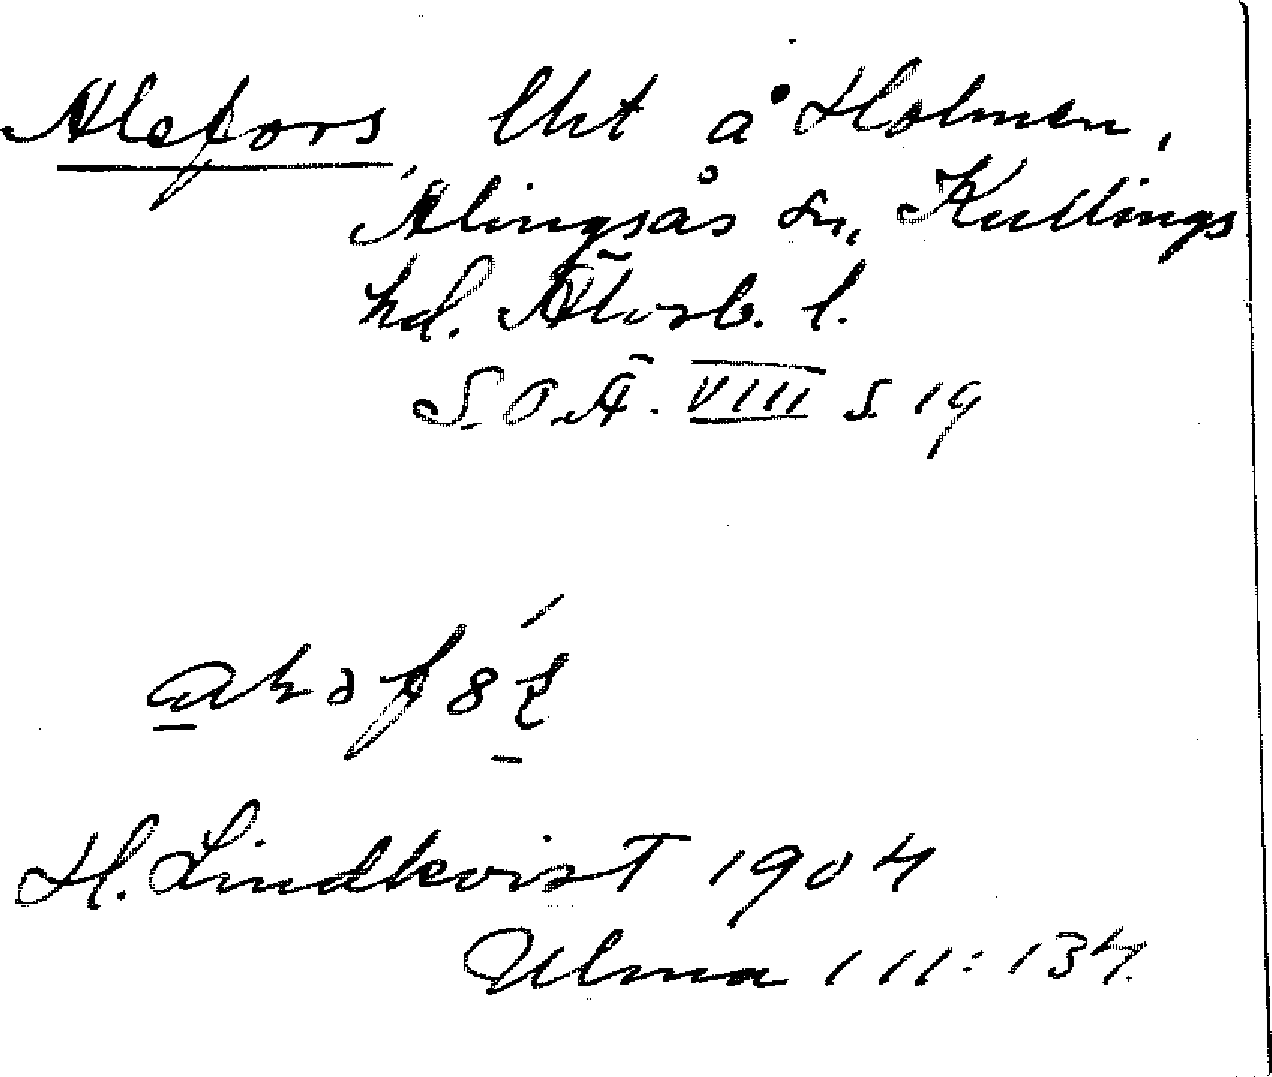 Alefors, lht å Holmen,
Alingsås sn, Kullings
hd. Älvsb. l.
S.O.Ä. VIII s 19
H. Lindkvist 1904
Ulma 111:134.